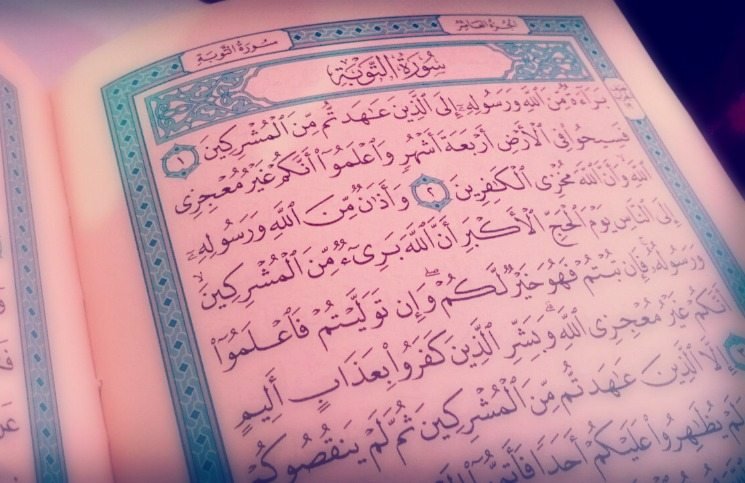 سورة التوبة
الجزء العاشر
سُورَةُ التَّوْبَةِ
بَرَآءَةٌ مِّنَ ٱللَّهِ وَرَسُولِهِۦٓ إِلَى ٱلَّذِينَ عَٰهَدتُّم مِّنَ ٱلْمُشْرِكِينَ ١
فَسِيحُوا۟ فِى ٱلْأَرْضِ أَرْبَعَةَ أَشْهُرٍ وَٱعْلَمُوٓا۟ أَنَّكُمْ غَيْرُ مُعْجِزِى
ٱللَّهِ وَأَنَّ ٱللَّهَ مُخْزِى ٱلْكَٰفِرِينَ ٢ وَأَذَٰنٌ مِّنَ ٱللَّهِ وَرَسُولِهِۦٓ
إِلَى ٱلنَّاسِ يَوْمَ ٱلْحَجِّ ٱلْأَكْبَرِ أَنَّ ٱللَّهَ بَرِىٓءٌ مِّنَ ٱلْمُشْرِكِينَ
وَرَسُولُهُۥ فَإِن تُبْتُمْ فَهُوَ خَيْرٌ لَّكُمْ وَإِن تَوَلَّيْتُمْ فَٱعْلَمُوٓا۟
أَنَّكُمْ غَيْرُ مُعْجِزِى ٱللَّهِ وَبَشِّرِ ٱلَّذِينَ كَفَرُوا۟ بِعَذَابٍ أَلِيمٍ
إِلَّا ٱلَّذِينَ عَٰهَدتُّم مِّنَ ٱلْمُشْرِكِينَ ثُمَّ لَمْ يَنقُصُوكُمْ
وَلَمْ يُظَٰهِرُوا۟ عَلَيْكُمْ أَحَدًا فَأَتِمُّوٓا۟